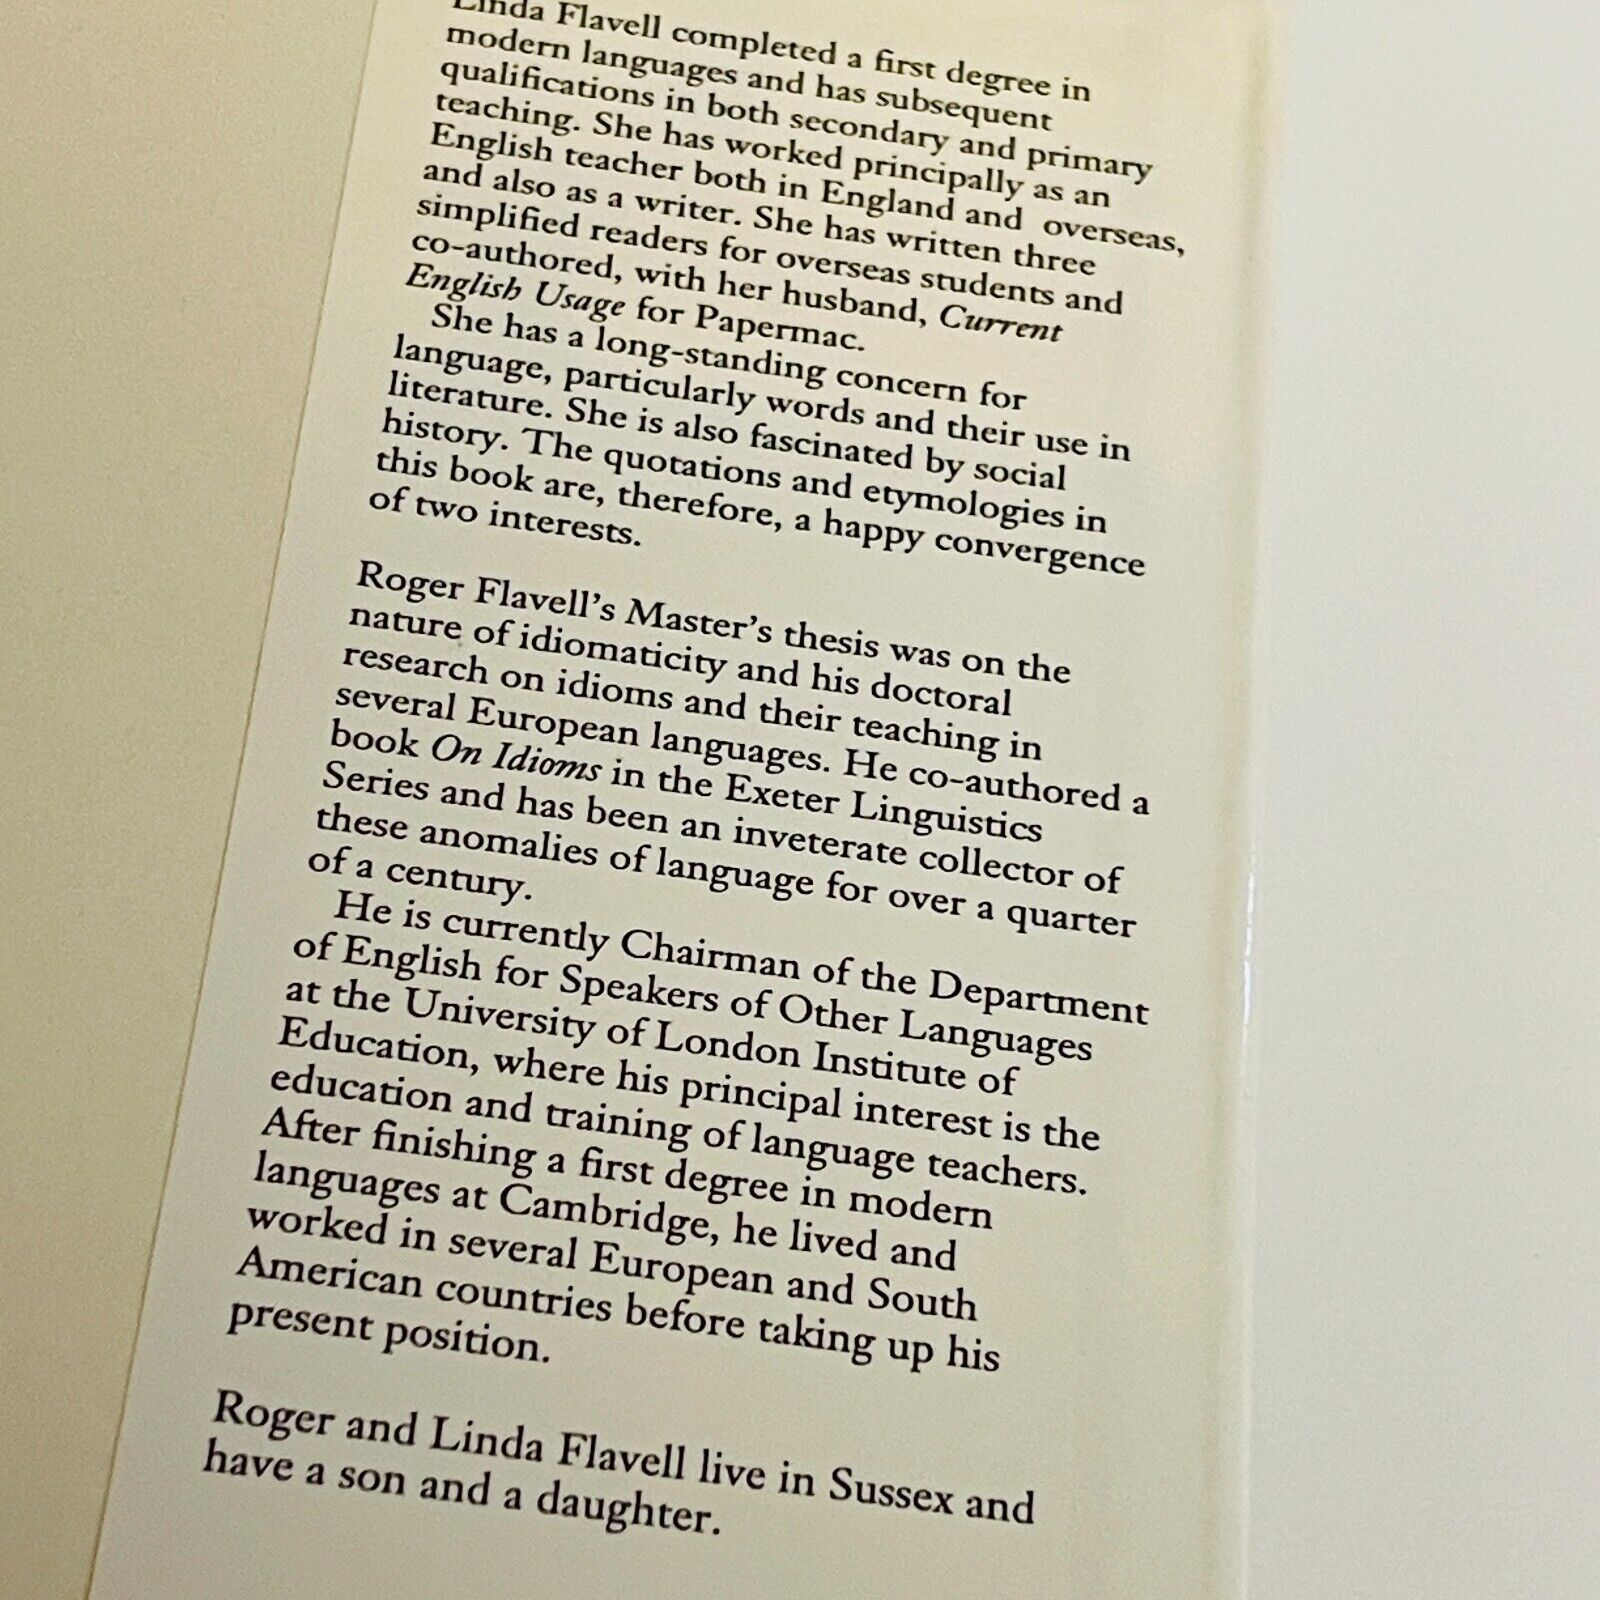 Linda Flavell completed a first degree in
modern languages and has subsequent
qualifications in both secondary and primary
teaching. She has worked principally as an
English teacher both in England and overseas,
and also as a writer. She has written three
simplified readers for overseas students and
co-authored, with her husband, Current
English Usage for Papermac.
She has a long-standing concern for
language, particularly words and their use in
literature. She is also fascinated by social
history. The quotations and etymologies in
this book are, therefore, a happy convergence
of two interests.
Roger Flavell's Master's thesis was on the
nature of idiomaticity and his doctoral
research on idioms and their teaching in
several European languages. He co-authored a
book On Idioms in the Exeter Linguistics
Series and has been an inveterate collector of
these anomalies of language for over a quarter
of a century.
He is currently Chairman of the Department
of English for Speakers of Other Languages
at the University of London Institute of
Education, where his principal interest is the
education and training of language teachers.
After finishing a first degree in modern
languages at Cambridge, he lived and
worked in several European and South
American countries before taking up his
present position.
Roger and Linda Flavell live in Sussex and
have a son and a daughter.